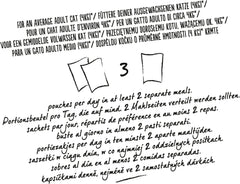 FOR AN AVERAGE ADULT CAT (4KG)*/ FÜTTERE DEINER AUSGEWACHSENEN KATZE (4KG)*/
POUR UN CHAT ADULTE D'ENVIRON 4KG*/ PER UN GATTO ADULTO DI CIRCA 4KG*/
VOOR EEN GEMIDDELDE VOLWASSEN KAT (4KG)*/ PRZECIĘTNEMU DOROSŁEMU KOTU, WAŻĄCEMU OK. 4KG*/
PARA UN GATO ADULTO MEDIO (4KG)*/ DOSPĚLOU KOČKU O PRŮMĚRNÉ HMOTNOSTI (4 KG)* KRMTE
3
pouches per day in at least 2 separate meals.
Portionsbeutel pro Tag, die auf mind. 2 Mahlzeiten verteilt werden sollten.
sachets par jour, répartis de préférence en au moins 2 repas.
buste al giorno in almeno 2 pasti separati.
portiezakjes per dag in ten minste 2 aparte maaltijden.
saszetki w ciągu dnia, w co najmniej 2 oddzielnych posiłkach.
sobres al día en al menos 2 comidas separadas.
kapsičkami denně, nejméně ve 2 samostatných dávkách.